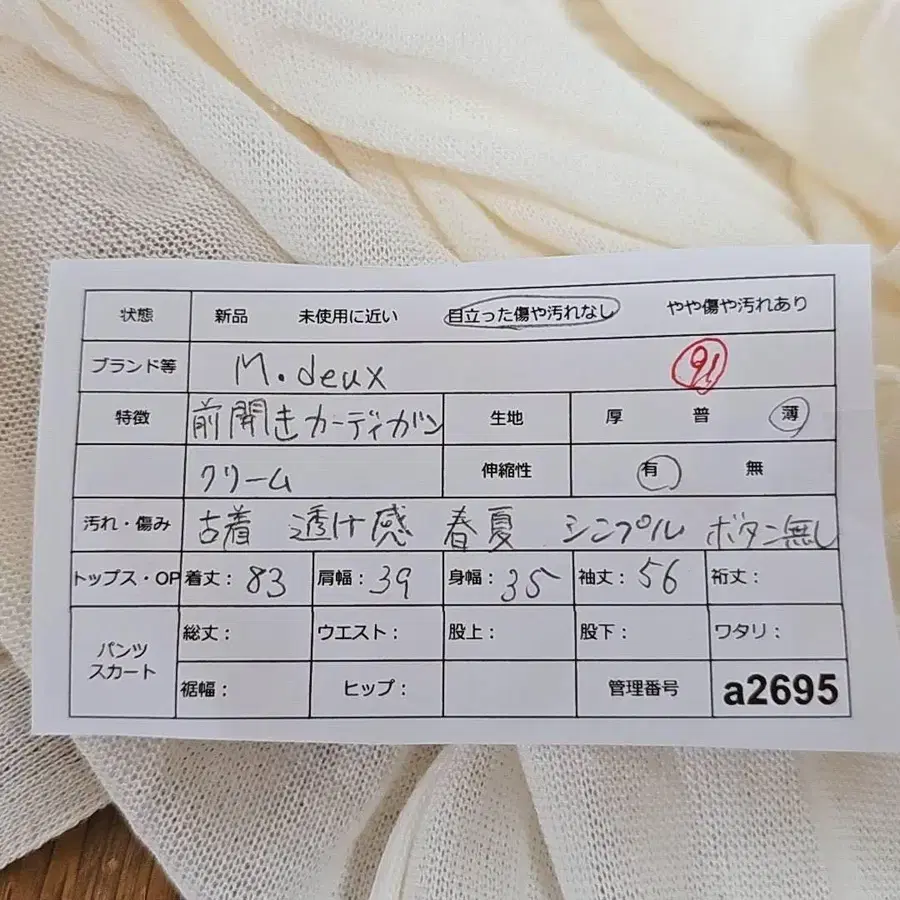 状態 新品 未使用に近い 目立った傷や汚れなし やや傷や汚れあり
ブランド等 M.deux
特徴 前開きカーディガン 生地 厚 普 薄
クリーム 伸縮性 有 無
汚れ・傷み 古着 透け感 春夏 シンプル ボタン無し
トップス・OP 着丈: 83 肩幅: 39 身幅: 35 袖丈: 56 裄丈:
パンツ スカート 総丈: ウエスト: 股上: 股下: ワタリ:
裾幅: ヒップ: 管理番号 a2695